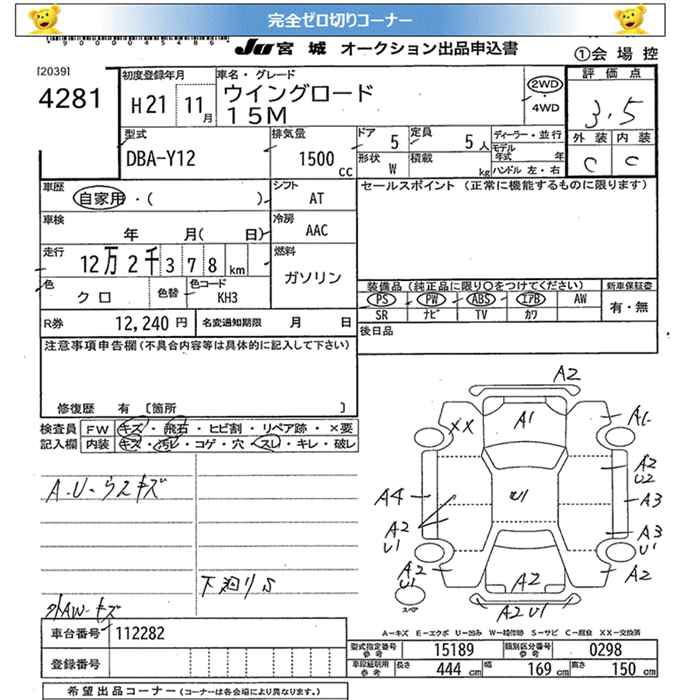 完全ゼロ切りコーナー
JU 宮城 オークション出品申込書
①会場控
[2039]
4281
初度登録年月
H21 11月
車名・グレード
ウイングロード
15M
2WD
・
4WD
評価点
3.5
外装 内装
C C
型式
DBA-Y12
排気量
1500 cc
ドア 5
定員 5人
形状 W
積載 kg
ディーラー・並行
モデル年式 年
ハンドル 左・右
車歴
自家用・( )
シフト
AT
セールスポイント (正常に機能するものに限ります)
車検
年 月( 日)
冷房
AAC
走行
12万2千378km
燃料
ガソリン
色
クロ
色替
色コード
KH3
装備品(純正品に限り○をつけてください)
PS PW ABS エアB AW
SR ナビ TV カワ
新車保証書
有・無
R券 12,240円
名変通知期限 月 日
後日品
注意事項申告欄(不具合内容等は具体的に記入して下さい)
修復歴 有 [箇所 ]
検査員
記入欄
FW キズ・飛石・ヒビ割・リペア跡・×要
内装 キズ・汚レ・コゲ・穴・スレ・キレ・破レ
A・U・ウスキズ
下廻りS
外AW-キズ
A2
XX
A1
A1
A2
U2
A4
U1
A3
A2
U1
A3
U1
A2
U1
A2
A2
A2U1
スペア
A−キズ E−エクボ U−凹み W−補修跡 S−サビ C−腐食 XX−交換済
車台番号 112282
登録番号
型式指定番号
参考
15189
類別区分番号
参考
0298
車両級別用
参考
長さ 444 cm
幅 169 cm
高さ 150 cm
希望出品コーナー(コーナーは各会場により異なります。)